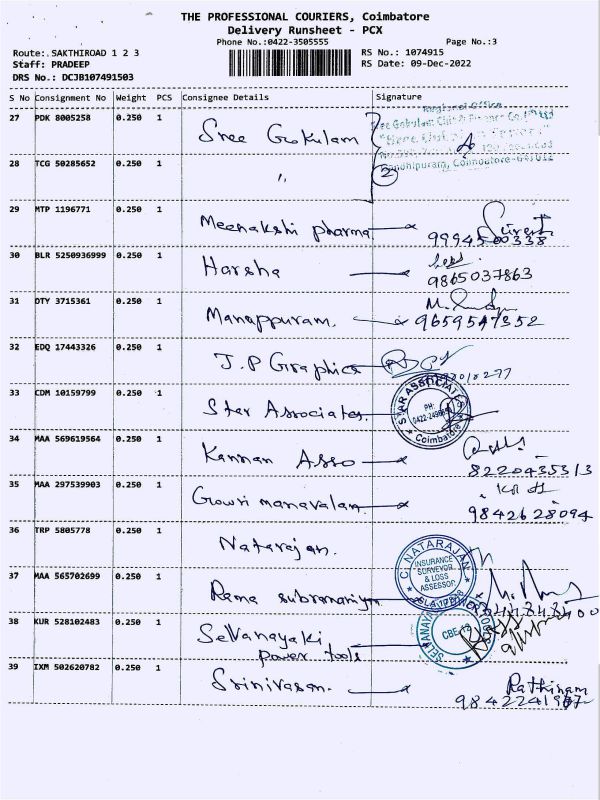 THE PROFESSIONAL COURIERS, Coimbatore
Delivery Runsheet - PCX
Phone No.:0422-3505555
Page No.:3
Route:.SAKTHIROAD 1 2 3
RS No.: 1074915
Staff: PRADEEP
RS Date: 09-Dec-2022
DRS No.: DCJB107491503
S No Consignment No Weight PCS Consignee Details Signature
27 PDK 8005258 0.250 1 Sree Gokulam
28 TCG 50285652 0.250 1 " 2
29 MTP 1196771 0.250 1 Meenakshi pharma 9994500338
30 BLR 5250936999 0.250 1 Harsha 9865037863
31 DTY 3715361 0.250 1 Manappuram. 9659547352
32 EDQ 17443326 0.250 1 J.P Graphics
33 CDM 10159799 0.250 1 Star Associates. STAR ASSOCIATES PH: Coimbatore
34 MAA 569619564 0.250 1 Kannan Asso 8220435313
35 MAA 297539903 0.250 1 Gowri manavalan 9842628094
36 TRP 5805778 0.250 1 Natarajan. C. NATARAJAN INSURANCE SURVEYOR & LOSS ASSESSOR
37 MAA 565702699 0.250 1 Rama subramaniyn
38 KUR 528102483 0.250 1 Selvanayaki power tools CBE-12
39 IXM 502620782 0.250 1 Srinivasan. Rathinam